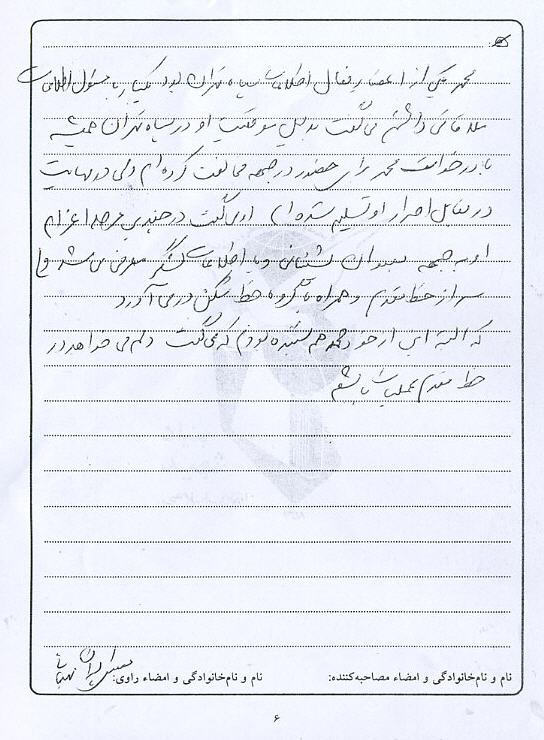 محمد یکی از اعضاء فعال اطلاعات سپاه تهران بود یکبار با مسئول اطلاعات
ملاقاتی داشتم می‌گفت بدلیل موقعیت او در سپاه تهران همیشه
با درخواست محمد برای حضور در جبهه مخالفت کرده‌ام ولی در نهایت
در مقابل اصرار او تسلیم شده‌ام) او می‌گفت در چندین مرحله اعزام
او به جبهه بعنوان پشتیبانی و یا اطلاعات لشگر معرفی می‌شد و
سر از خط مقدم و همراه با گروه خط شکن درمی‌آورد
که البته این از خود محمد هم شنیده بودم که می‌گفت دلم می‌خواهد در
خط مقدم عملیات باشم
نام و نام‌خانوادگی و امضاء مصاحبه‌کننده:
نام و نام‌خانوادگی و امضاء راوی:
۶